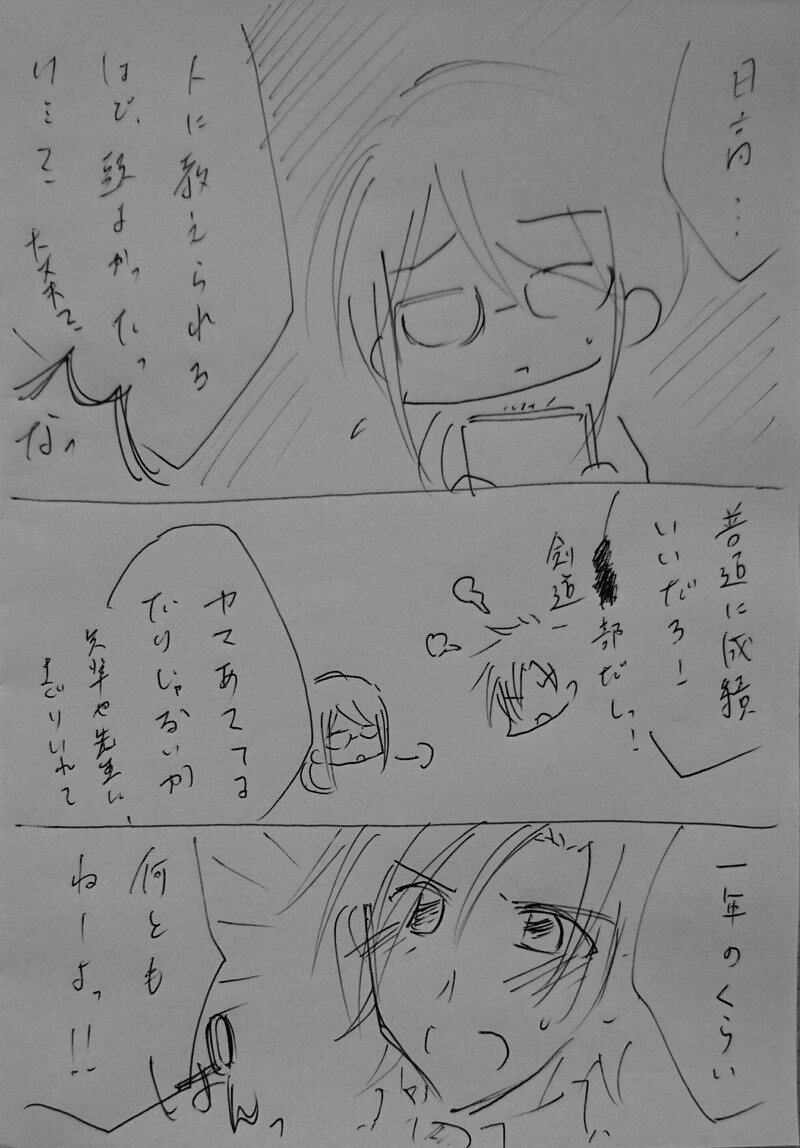 日高…
人に教えられる
ほど、頭よかったっ
けミて
な、
普通に成績
いいだろー
剣道部だしっ!
ヤマあててる
だけじゃないか
先輩や先生に、
まざりいれて
一年のくらい
何とも
ねーよっ!!